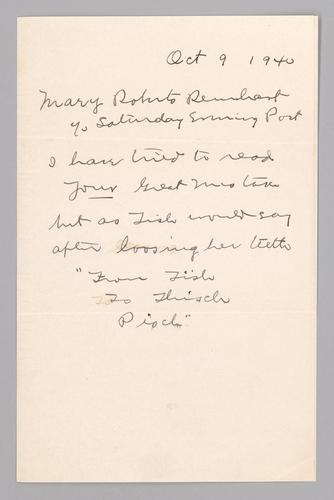 Oct 9 1940
Mary Roberts Reinhart
℅ Saturday Evening Post
I have tried to read
your Great Mistake
but as Tish would say
after loosing her teeth
"From Tish
To Thisch
Pisch"